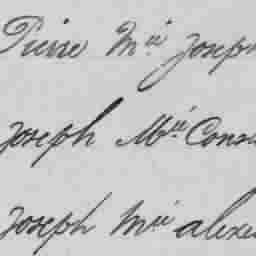 Pierre Mie Joseph
Joseph Mie Cons
Joseph Mie alexi